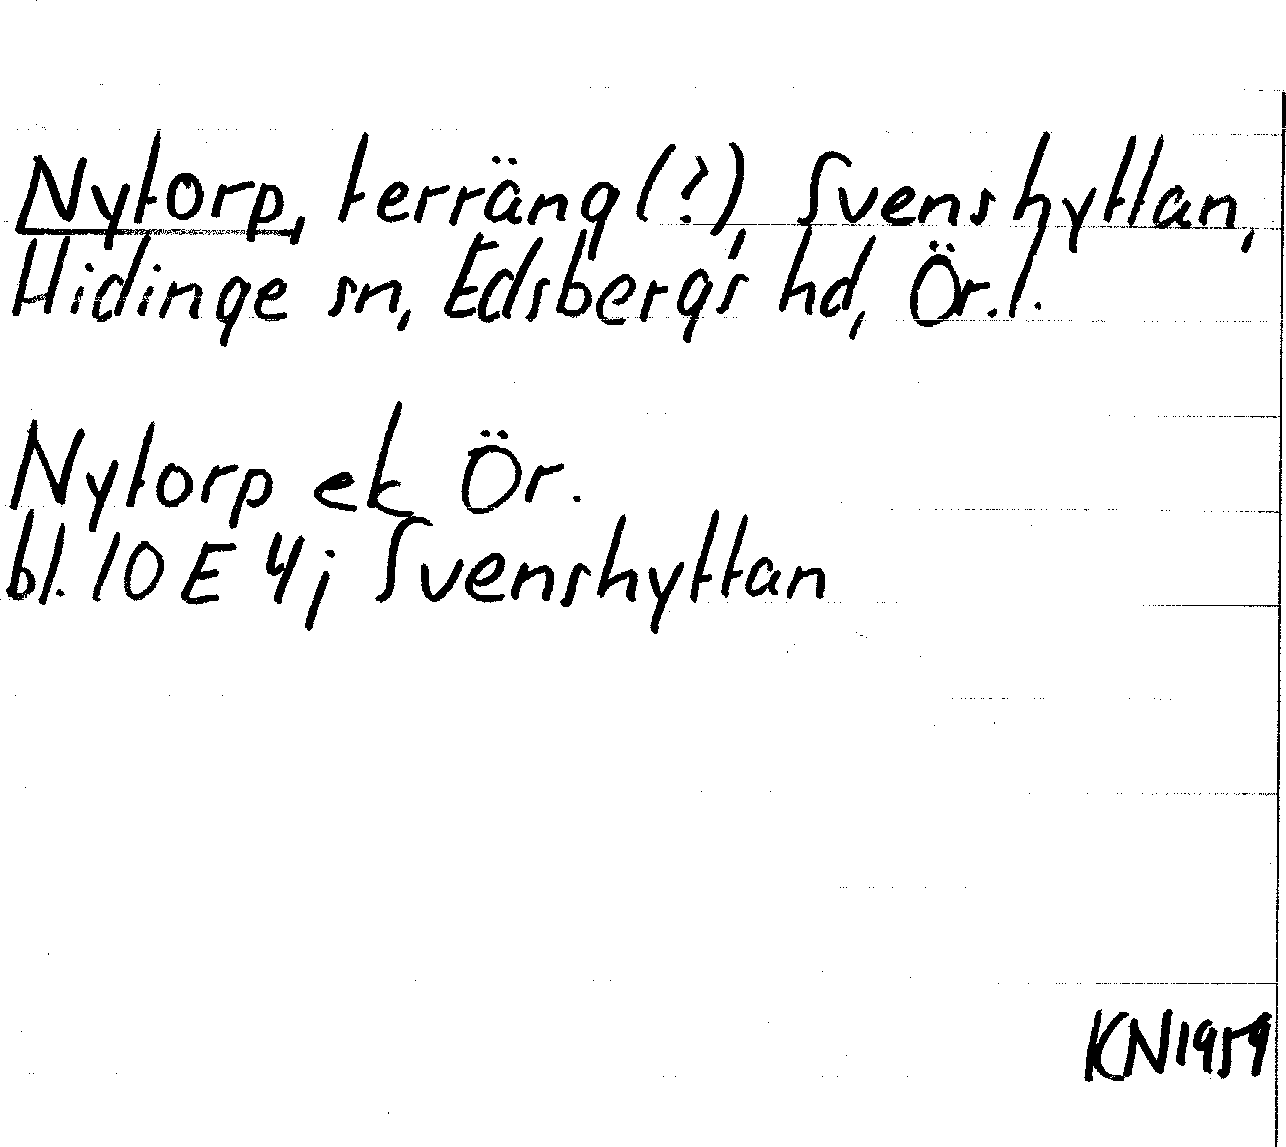 Nytorp, terräng (?), Svenshyttan,
Hidinge sn, Edsbergs hd, Ör. l.
Nytorp ek Ör.
bl. 10 E 4 j Svenshyttan
KN 1959